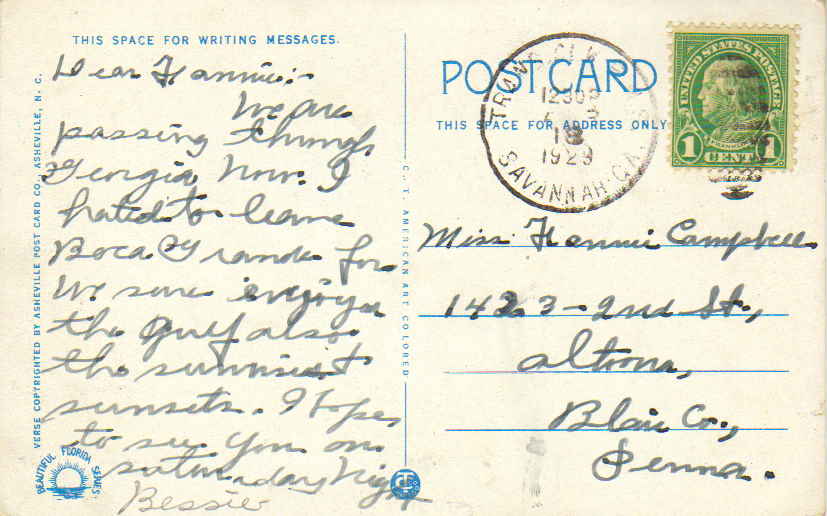 THIS SPACE FOR WRITING MESSAGES.
Dear Fannie:-
We are
passing through
Georgia now. I
hated to leave
Boca Grande for
we sure enjoyed
the gulf also
the sunrise &
sunsets. I hope
to see you on
saturday night
Bessie
VERSE COPYRIGHTED BY ASHEVILLE POST CARD CO., ASHEVILLE, N. C.
BEAUTIFUL FLORIDA SERIES
C. T. AMERICAN ART COLORED
POST CARD
THIS SPACE FOR ADDRESS ONLY
TRANS. CLK.
1230P
18
1929
SAVANNAH, GA.
UNITED STATES POSTAGE
FRANKLIN
1 CENT 1
Miss Fannie Campbell
1423-2nd St.,
Altoona,
Blair Co.,
Penna.